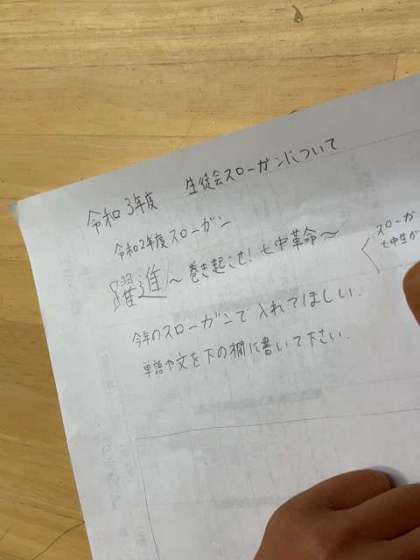 令和3年度 生徒会スローガンについて
令和2年度スローガン
躍進～巻き起こせ!七中革命～
スローガ
七中生が
今年のスローガンで入れてほしい
単語や文を下の欄に書いて下さい.